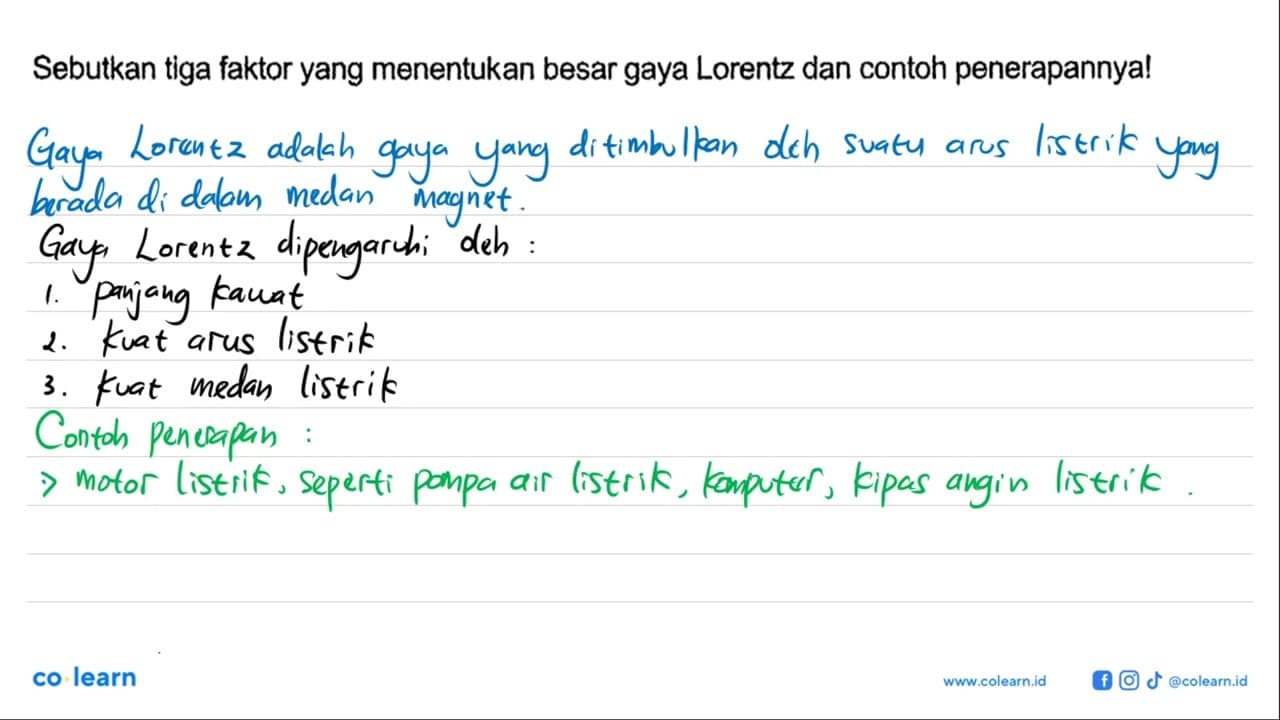 Sebutkan tiga faktor yang menentukan besar gaya Lorentz dan contoh penerapannya!
Gaya Lorentz adalah gaya yang ditimbulkan oleh suatu arus listrik yang
berada di dalam medan magnet.
Gaya Lorentz dipengaruhi oleh :
1. panjang kawat
2. kuat arus listrik
3. kuat medan listrik
Contoh penerapan :
> motor listrik, seperti pompa air listrik, komputer, kipas angin listrik.
co learn
www.colearn.id
@colearn.id